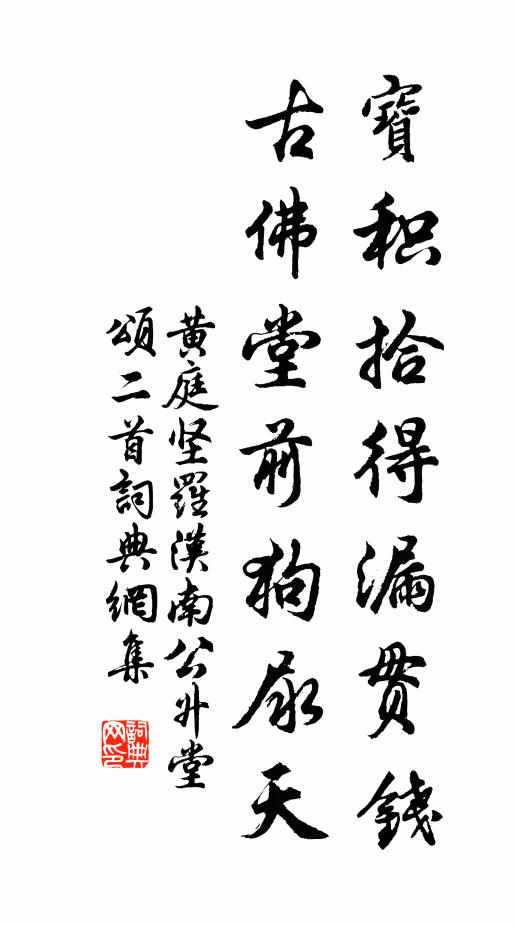 寶积拾得漏貫錢
古佛堂前狗尿天
黃庭坚羅漢南公升堂
頌二首詞典網集
詞典網印